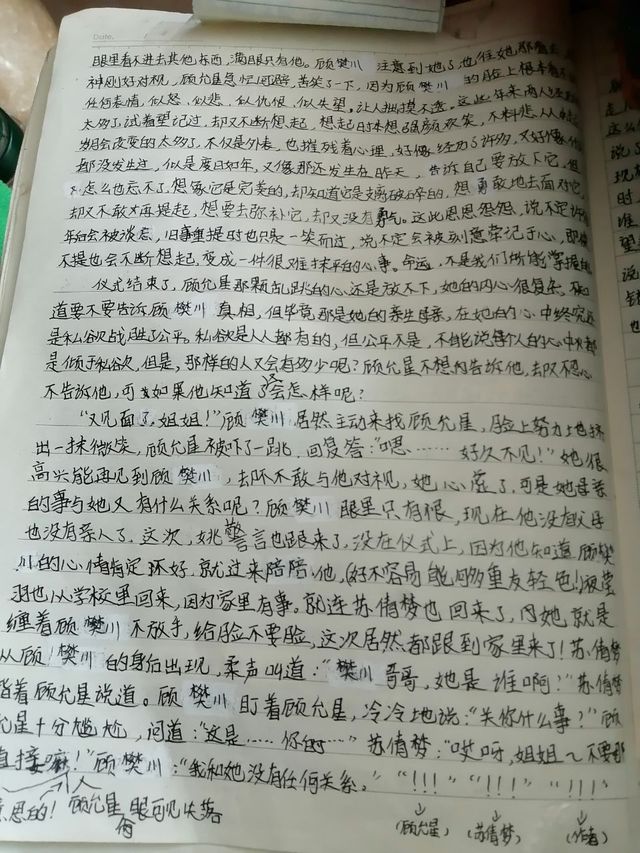 Date.
眼里看不进去其他东西，满眼只有他。顾樊川 注意到她了，也往她那看去，
神刚好对视，顾允星急忙回避，苦笑了一下，因为顾樊川 的脸上根本看不
任何表情，似怒，似悲，似仇恨，似失望，让人揣摸不透，这些年来两人经
太多了，试着望记过，却又不断想起，想起时本想强颜欢笑，不料悲从
岁月会改变的太多了，不仅是外表，也摧残着心理，好像经历了许多，又好像
都没发生过，似是度日如年，又像那还发生在昨天，告诉自己要放下它，但
下怎么也忘不了，想象它是完美的，却知道它是支离破碎的，想勇敢地去面对它，
却又不敢再提起，想要去弥补它，却又没有勇气。这些恩恩怨怨，说不定许
年后会被淡忘，旧事重提时也只是一笑而过，说不定会被刻意常记于心，即使
不提也会不断想起，变成一件很难抹平的心事。命运，不是我们所能掌握
仪式结束了，顾允星那颗乱跳的心还是放不下，她的内心很复杂，不知
道要不要告诉顾樊川 真相，但毕竟那是她的亲生母亲，在她的心中终究还
是私欲战胜了公平。私欲是人人都有的，但公平不是，不能说每个人的心中
是倾于私欲，但是，那样的人又会有多少呢？顾允星不想告诉他，却又不忍心
不告诉他，可如果他知道了又会怎样呢？
“又见面了，姐姐！”顾樊川 居然主动来找顾允星，脸上努力地挤
出一抹微笑，顾允星被吓了一跳，回复答：“嗯…… 好久不见！”她很
高兴能再见到顾樊川，去却不敢与他对视，她心虚了，可是她母亲
的事与她又有什么关系呢？顾樊川 眼里只有恨，现在他没有父母
也没有亲人了，这次，姚警言也跟来了，没在仪式上，因为他知道顾樊
川的心情肯定不好，就过来陪陪他，(好不容易能间多重友轻色！)夜莹
羽也从学校里回来，因为家里有事。就连苏倩梦也回来了，她就是
缠着顾樊川不放手，给脸不要脸，这次居然都跟到家里来了！苏倩梦
从顾樊川 的身后出现，柔声叫道：“樊川哥哥，她是谁啊？”苏倩梦
指着顾允星说道。顾樊川 盯着顾允星，冷冷地说：“关你什么事？”顾
允星十分尴尬，问道：“这是…… 你的…” 苏倩梦：“哎呀，姐姐～不要那
直接嘛！”顾樊川：“我和她没有任何关系。” “！！！” “！！！” “！！！”
意思的！顾允星 眼可见失落 (顾允星) (苏倩梦) (作者)